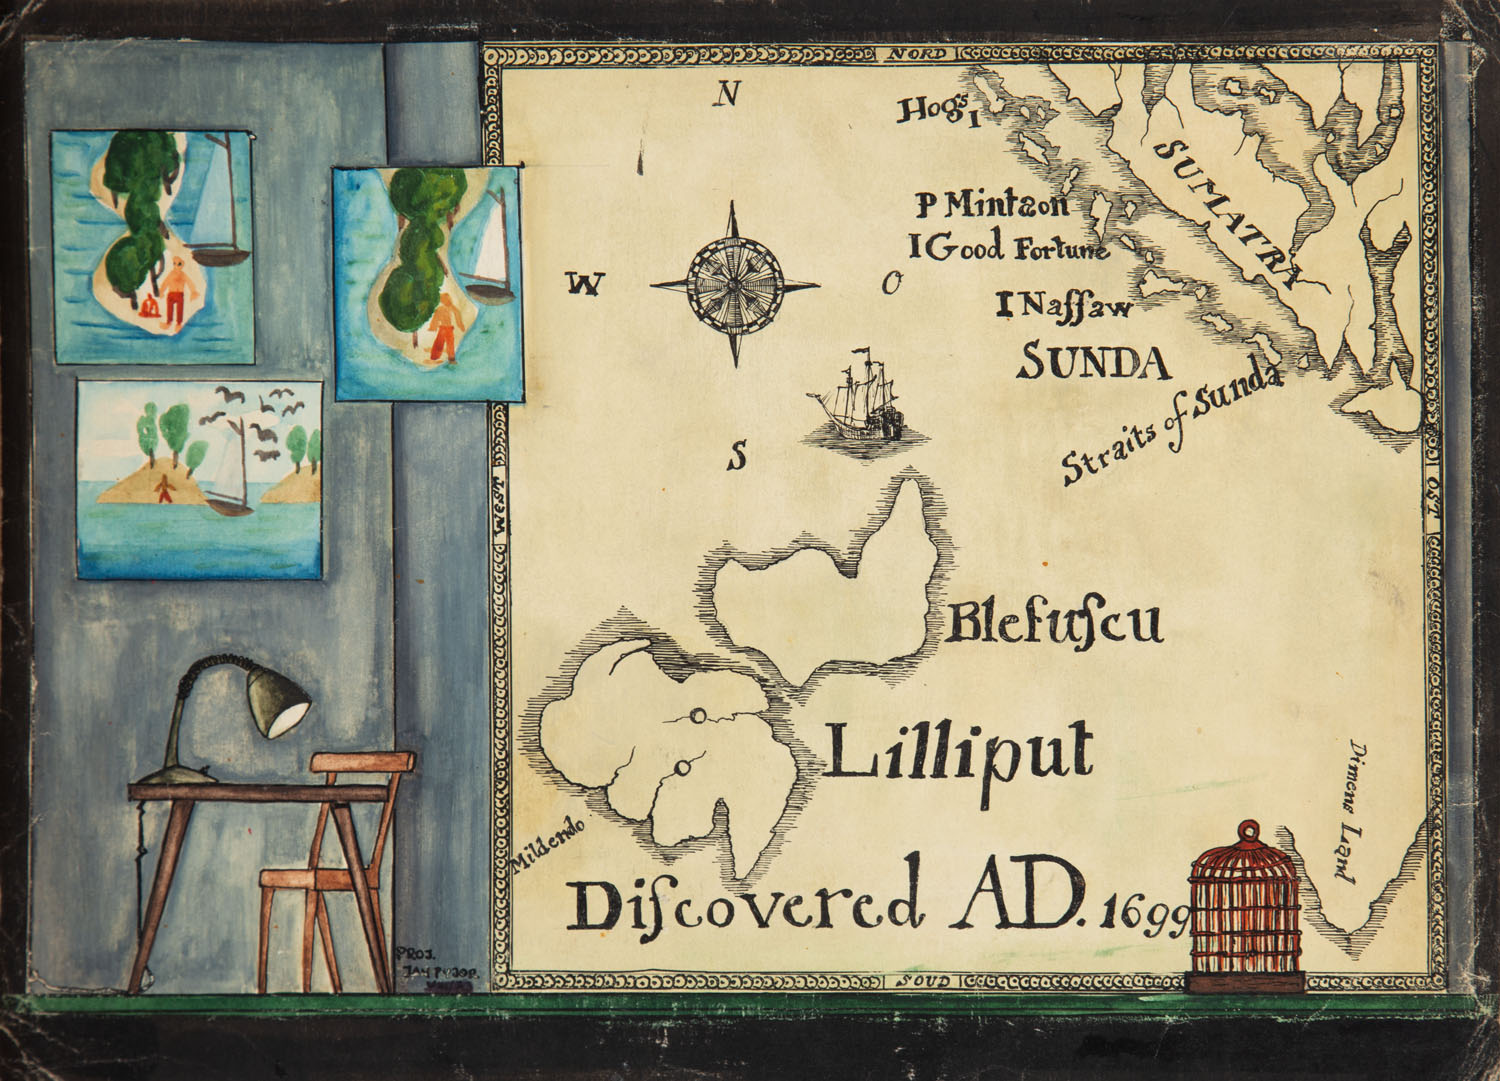 NORD
N
Hogs I
SUMATRA
P Mintaon
I Good Fortune
W
O
I Naſſaw
SUNDA
Straits of Sunda
S
WEST
OST
Blefuſcu
Lilliput
Dimens Land
Mildendo
Diſcovered AD. 1699
PROJ.
JAN
SOUD